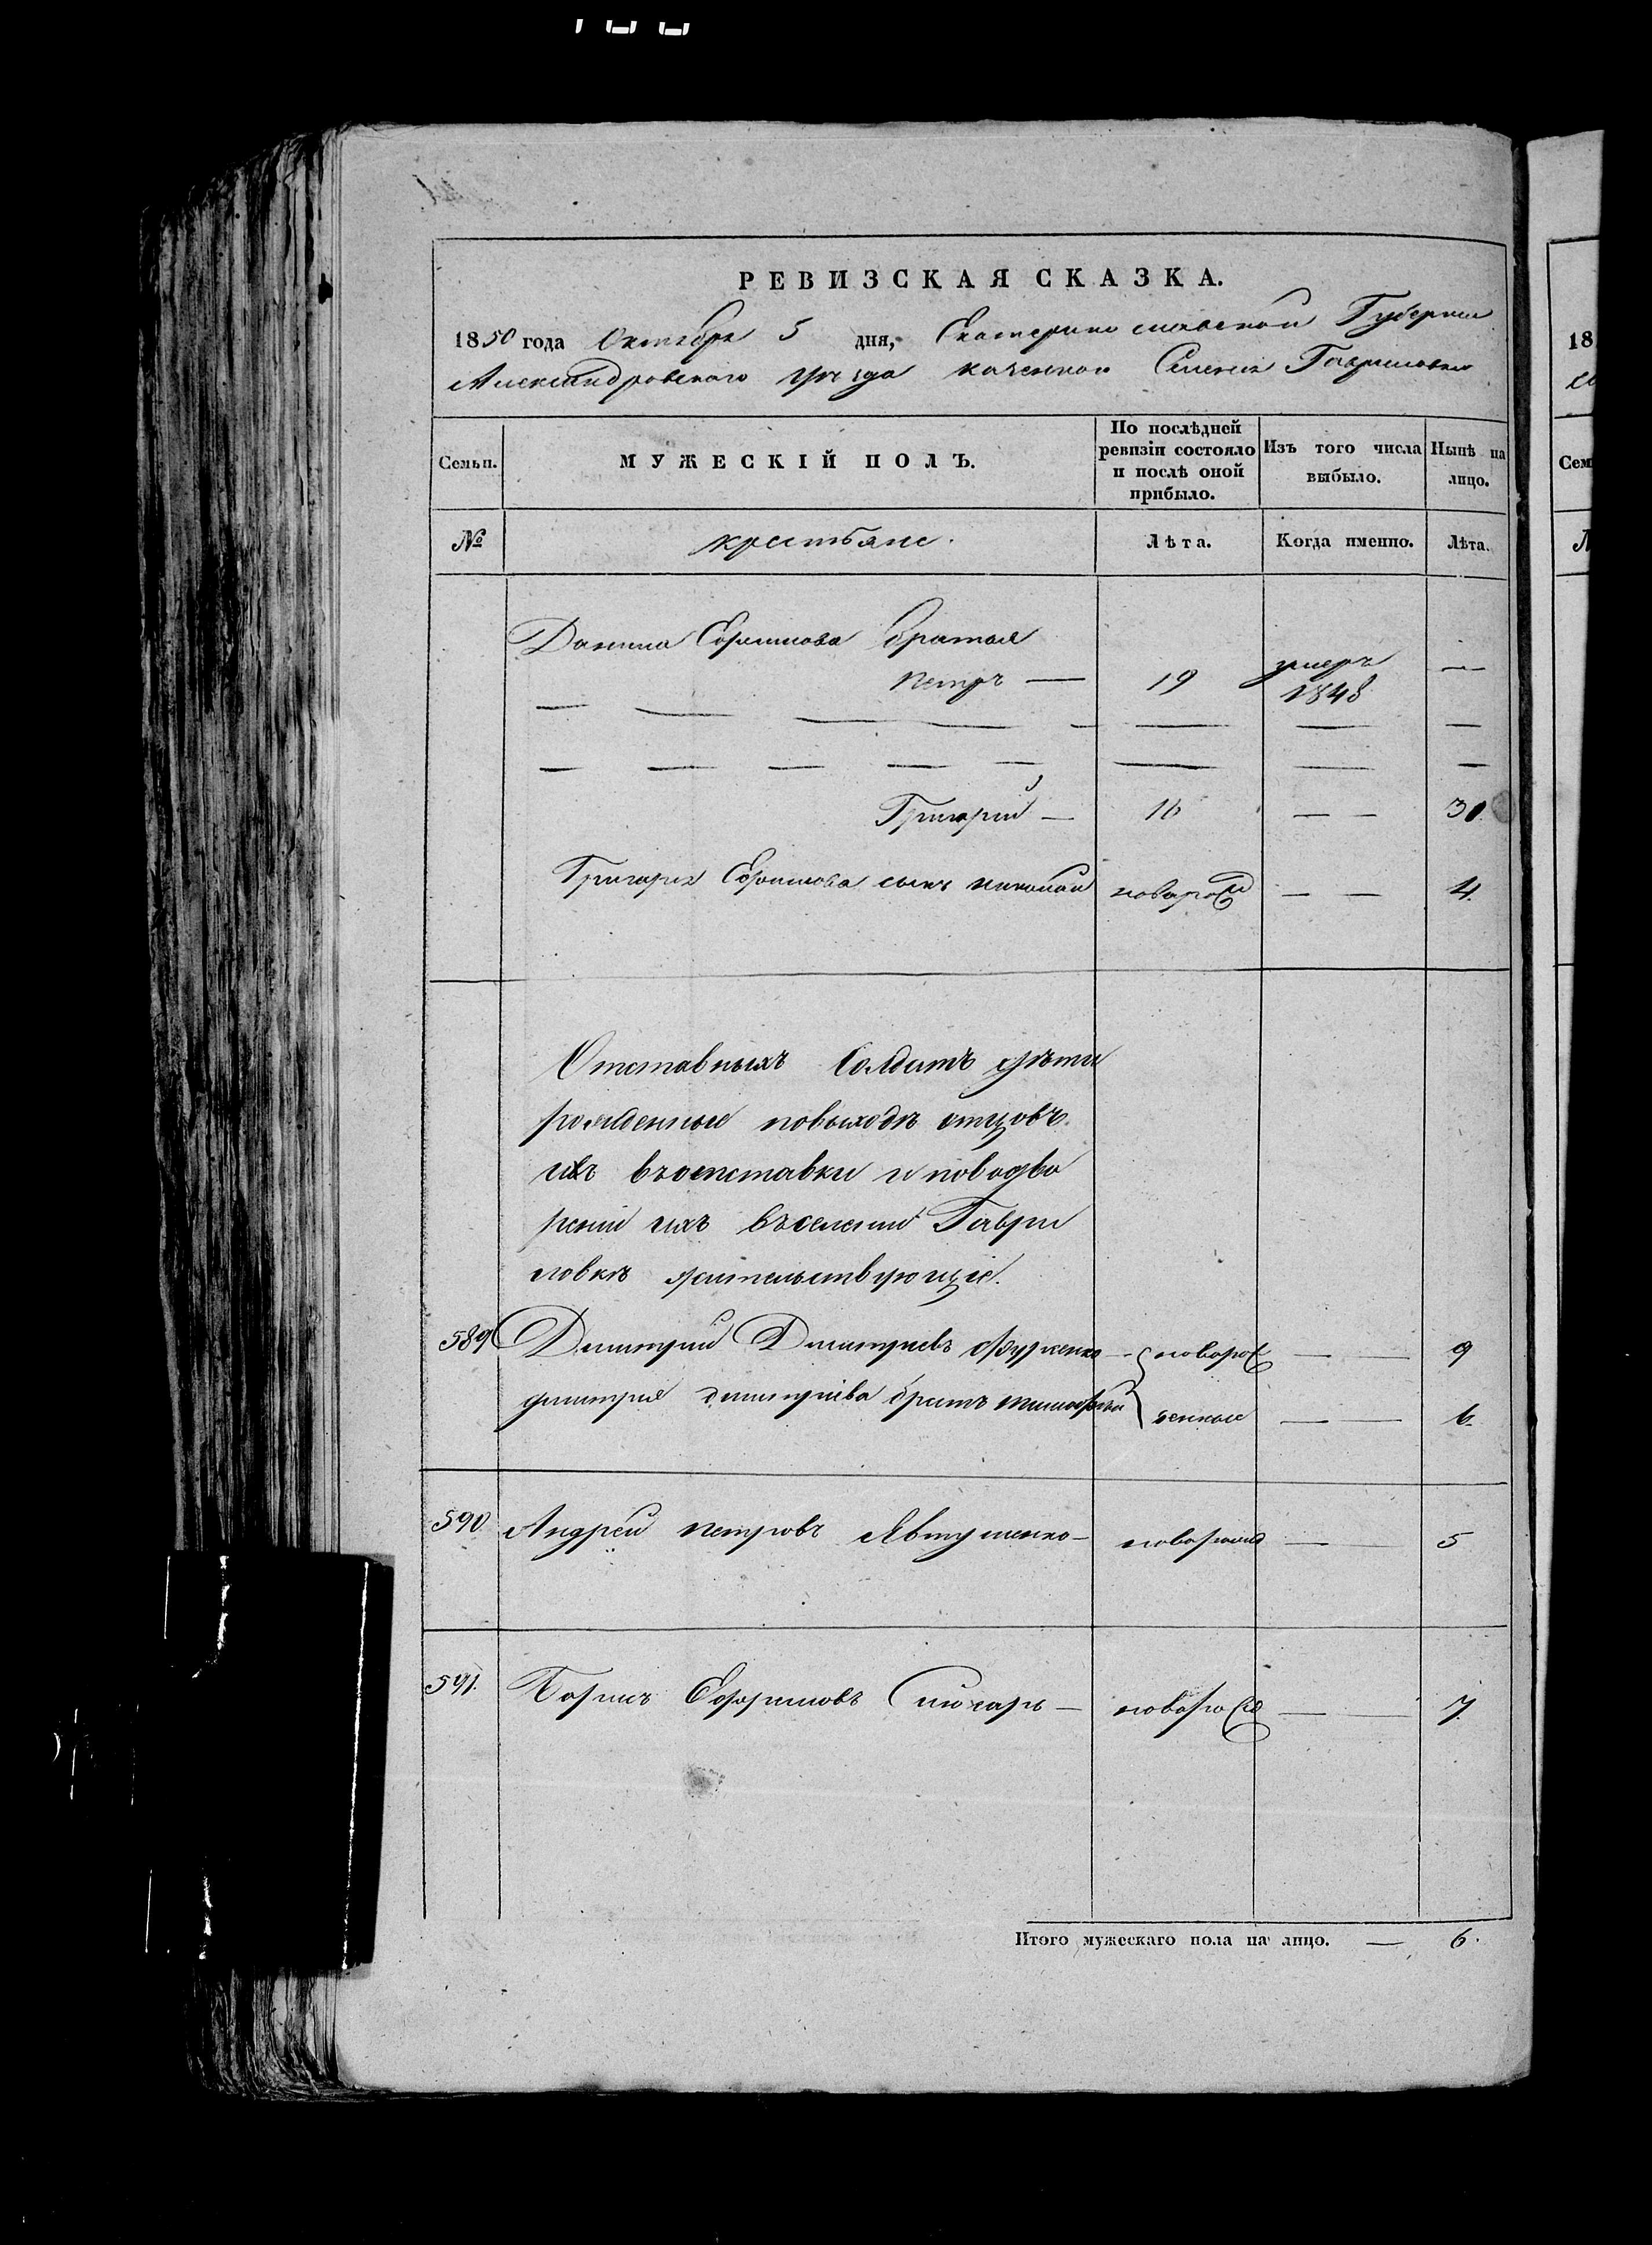 РЕВИЗСКАЯ СКАЗКА.
1850 года Октября 5 дня, Екатеринославской Губернии
Александровского уѣзда казенного Селения Гавриловки
Семьи. МУЖЕСКІЙ ПОЛЪ. По послѣдней ревизіи состояло и послѣ оной прибыло. Изъ того числа выбыло. Нынѣ на лицо.
№ крестьяне. Лѣта. Когда именно. Лѣта.
Данила Ефимова братья
Петръ — 19 умеръ 1848 —
Григорий — 16 — — 30.
Григория Ефимова сынъ николай новорожд — — 4.
Отставныхъ Солдатъ дѣти
рожденные повыходѣ отцовъ
ихъ въотставки и поводво
рении ихъ вселении Гаври
ловкѣ жительствующіе.
589 Дмитрий Дмитриевъ — новорож — — 9
дмитрия дмитриева братъ тимофей денные — — 6.
590 Андрей петровъ Явтушенко — новорожд — — 5
591. Борисъ Ефримовъ — новорожд — — 7.
Итого мужескаго пола на лицо. — 6.
18
Сем